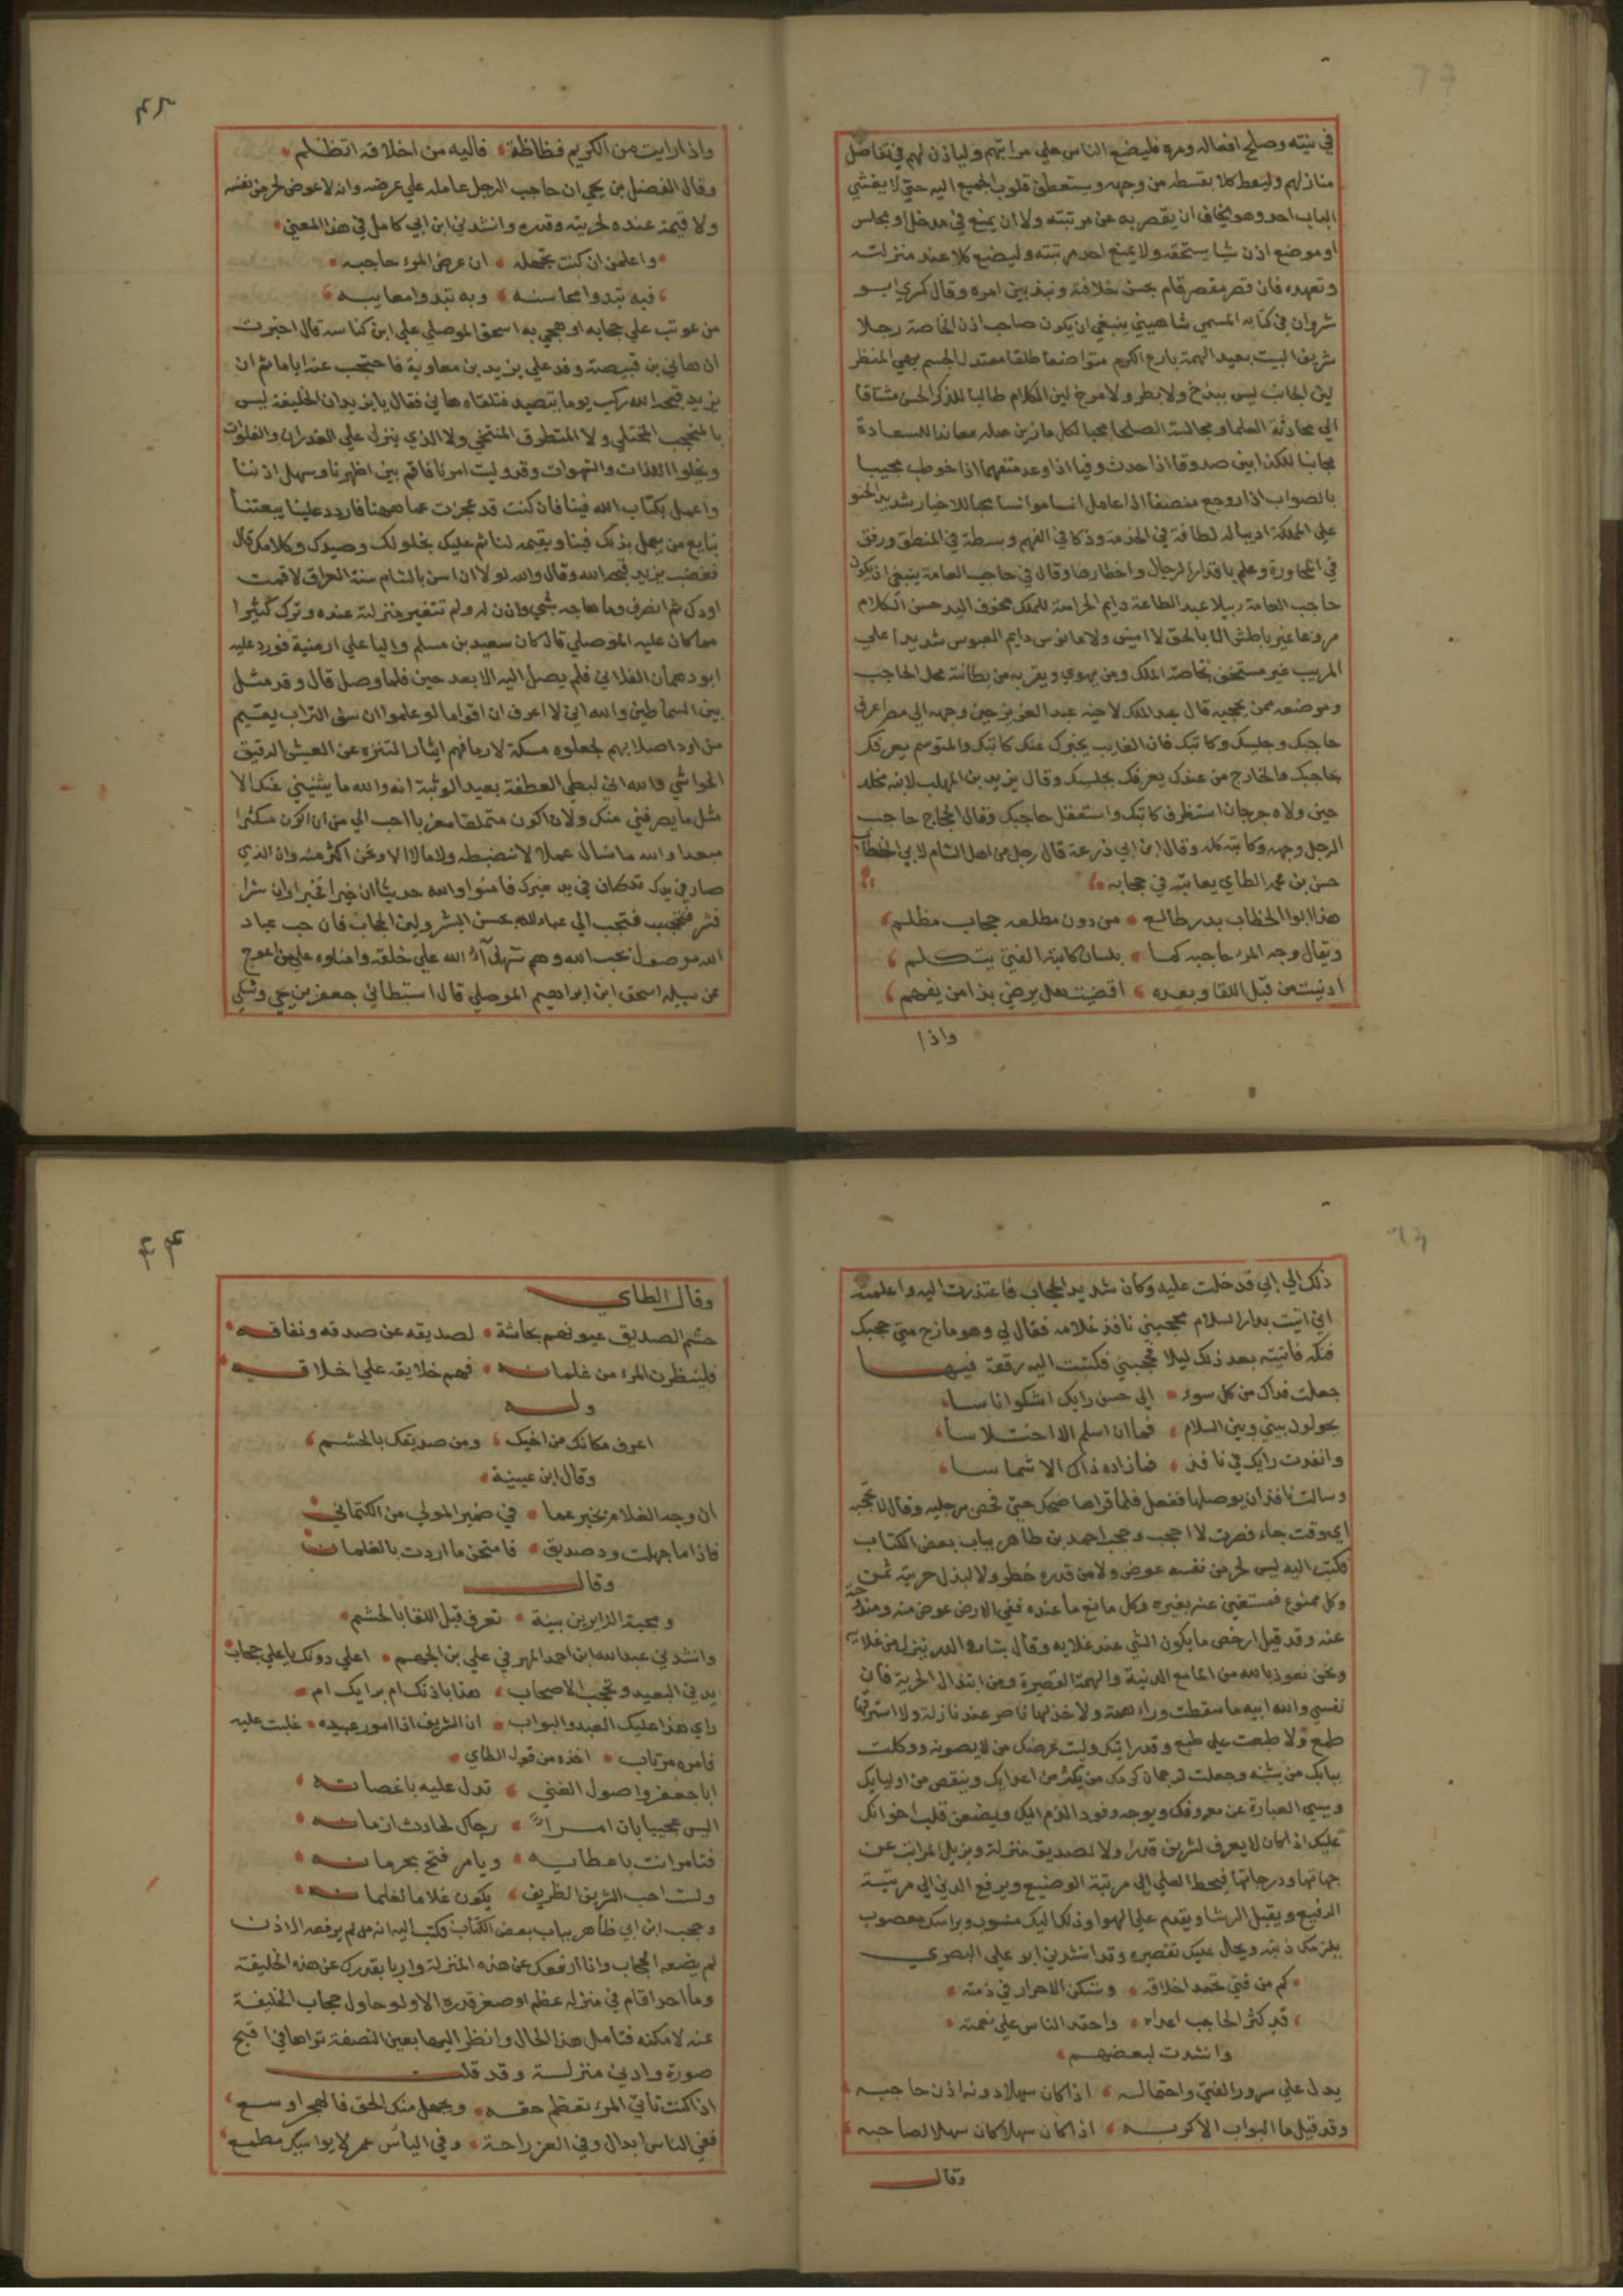 في نيته وصلح افعاله ومره فليضع الناس علي مراتبهم ولياذن لهم في تفاضل
منازلهم وليعط كلا بقسطه من وجهه ويستعطف قلوب الجميع اليه حتي لا يغشي
الباب احد وهو يخاف ان يقصر به عن مرتبته ولا ان يمنع في مدخل او مجلس
او موضع اذن شيا يستحقه ولا يمنع احد مرتبته وليضع كلا عند منزلته
وتعهده فان قصر مقصر قام بحسن خلافته ونبذ بين امره وقال كسري انو
شروان في كتابه المسمي شاهيني ينبغي ان يكون صاحب اذن الخاصة رجلا
شريف البيت بعيد الهمة بارع الكرم متواضعا طلقا معتدل الجسم بهي المنظر
لين الجانب ليس ببذخ ولا بطر ولا مرح لين الكلام طالبا للذكر الحسن مشتاقا
الي محادثة العلما ومجالسة الصلحا محبا لكل ما زين عمله معاندا للسعادة
مجانبا للكذابين صدوقا اذا حدث وفيا اذا وعد متفهما اذا خوطب مجيبا
بالصواب اذا روجع منصفا اذا عامل انسا موانسا محبا للاخيار شديد الحنو
علي المملكة اديبا له لطافة في الخدمة وذكا في الفهم وبسطة في المنطق ورفق
في المحاورة وعلم باقدار الرجال واخطارها وقال في حاجب العامة ينبغي ان يكون
حاجب العامة رجلا عبد الطاعة دايم الحراسة للملك مخوف اليد حسن الكلام
مروعا غير باطش الا بالحق لا انيس ولا مانوس دايم العبوس شديدا علي
المريب غير مستخف بخاصة الملك ومن يهوي ويقربه من بطانته محل الحاجب
وموضعه ممن يحجبه قال عبد الملك لاخيه عبد العزيز حين وجهه الي مصر اعرف
حاجبك وجليسك وكاتبك فان الغايب يخبرك عنك كاتبك والمتوسم يعرفك
بحاجبك والخارج من عندك يعرفك بجليسك وقال يزيد بن المهلب لابنه مخلد
حين ولاه جرجان استظرف كاتبك واستعقل حاجبك وقال الحجاج حاجب
الرجل وجهه وكاتبه كله وقال ابن ابي زرعة قال رجل من اهل الشام لابي الخطاب
حسن بن محمد الطاي يعاتبه في حجابه
هذا ابوا الخطاب بدر طالع من دون مطلعه حجاب مظلم
ويقال وجه المرء حاجبه كما بلسان كاتبه الفتي يتكلم
ادنيت من قبل اللقا وبعده اقضيت هل يرضي بذا من يفهم
واذا
واذا رايت من الكريم فظاظة فاليه من اخلاقه اتظلم
وقال الفضل بن يحيي ان حاجب الرجل عامله علي عرضه وانه لا عوض لحر من نفسه
ولا قيمة عنده لحريته وقدره وانشدني ابن ابي كامل في هذا المعني
واعلمن ان كنت تجهله ان عرض المرء حاجبه
فبه تبدوا محاسنه وبه تبدوا معايبه
من عوتب علي حجابه او هجي به اسحق الموصلي علي ابن كناسه قال اخبرت
ان هاني بن قبيصة وفد علي يزيد بن معاوية فاحتجب عنه اياما ثم ان
يزيد قبحه الله ركب يوما يتصيد فتلقاه هاني فقال يا يزيد ان الخليفة ليس
بالمحتجب المتخلي ولا المتطرف المتنحي ولا الذي ينزل علي الغدران والفلوات
ويخلوا للذات والشهوات وقد وليت امرنا فاقم بين اظهرنا وسهل اذننا
واعمل بكتاب الله فينا فان كنت قد عجزت عما ههنا فاردد علينا بيعتنا
نبايع من يعمل بذلك فينا ويقيمه لنا ثم عليك بخلواتك وصيدك وكلابك قال
فغضب يزيد قبحه الله وقال والله لولا ان اسن بالشام سنة العراق لاقمت
اودك ثم انصرف وما هاجه بشي واذن له ولم تتغير منزلته عنده وترك كثيرا
مما كان عليه الموصلي قال كان سعيد بن مسلم واليا علي ارمنية فورد عليه
ابو دهمان الغلابي فلم يصل اليه الا بعد حين فلما وصل قال وقد مثل
بين السماطين والله اني لا اعرف ان اقواما لو علموا ان سف التراب يقيم
من اود اصلابهم لجعلوه مسكة لارماقهم ايثارا للتنزه عن العيش الرقيق
الحواشي والله اني لبطي العطفة بعيد الوثبة انه والله ما يثنيني عنك الا
مثل ما يصرفني عنك ولان اكون متملقا مقربا احب الي من ان اكون مكثرا
مبعدا والله ما نسال عملا لا نضبطه ولا مالا الا ونحن اكثر منه وان الذي
صار في يدك قد كان في يد غيرك فامسوا والله حديثا ان خيرا فخير وان شرا
فشر فتحبب الي عباد الله بحسن البشر ولين الحجاب فان حب عباد
الله موصول بحب الله وهم شهدا الله علي خلقه وامناوه علي من اعوج
عن سبيله اسحق ابن ابراهيم الموصلي قال استبطاني جعفر بن يحيي وشكي
ذلك الي ابي فدخلت عليه وكان شديد الحجاب فاعتذرت اليه واعلمته
اني اتيت بدار السلام فحجبني نافذ غلامه فقال لي وهو مازح متي حجبك
فنكه فاتيته بعد ذلك ليلا فحجبني فكتبت اليه رقعة فيها
جعلت فداك من كل سوء الي حسن رايك اشكوا اناسا
يحولون بيني وبين السلام فما ان اسلم الا اختلاسا
وانفذت رايك في نافذ فما زاده ذاك الا شماسا
وسالت نافذ ان يوصلها ففعل فلما قراها ضحك حتي فحص برجليه وقال لا تحجبه
اي وقت جاء فصرت لا احجب وحجب احمد بن طاهر بباب بعض الكتاب
فكتب اليه ليس لحر من نفسه عوض ولا من قدره خطر ولا لبذل حريته ثمن
وكل ممنوع فمستغني عنه بغيره وكل مانع ما عنده ففي الارض عوض منه ومندوحة
عنه وقد قيل ارخص ما يكون الشي عند غلايه وقال بشار والدر يترك من غلايه
ونحن نعوذ بالله من المطامع الدنية والهمة القصيرة ومن ابتذال الحرية فان
نفسي والله ابيه ما سقطت وراء همة ولا خذلها ناصر عند نازلة ولا استرقها
طمع ولا طبعت علي طبع وقد رايتك وليت عرضك من لا يصونه ووكلت
ببابك من يشينه وجعلت ترجمان كرمك من يكثر من اعدايك وينقص من اوليايك
ويسي العبارة عن معروفك ويوجه وفود الذم اليك ويضغن قلب اخوانك
عليك اذ كان لا يعرف لشريف قدرا ولا لصديق منزلة ويزيل المراتب عن
جهاتها ودرجاتها فيحط العلي الي مرتبة الوضيع ويرفع الدني الي مرتبة
الرفيع ويقبل الرشا ويقدم علي الهوا وذلك اليك منسوب وبراسك معصوب
يلزمك ذنبه ويحال عليك تقصيره وقد انشدني ابو علي البصري
كم من فتي تحمد اخلاقه وتسكن الاحرار في ذمته
قد كثر الحاجب اعداه واحقد الناس علي نعمته
وانشدت لبعضهم
يدل علي سرور الفتي واحتماله اذا كان سهلا دونه اذن حاجبه
وقد قيل ما البواب الا كربه اذا كان سهلا كان سهلا لصاحبه
وقال
وقال الطاي
حشم الصديق عيونهم بحاثة لصديقه عن صدقه ونفاقه
فلينظرن المرء من غلمانه فهم خلايقه علي اخلاقه
وله
اعرف مكانك من اخيك ومن صديقك بالحشم
وقال ابن عيينة
ان وجه الغلام يخبر عما في ضمير المولي من الكتمان
فاذا ما جهلت ود صديق فامتحن ما اردت بالغلمان
وقال
ومحبة الزايرين بينة تعرف قبل اللقا بالحشم
وانشدني عبد الله ابن احمد المهرمي في علي بن الجهم اعلي دونك يا علي حجاب
يدني البعيد وتحجب الاصحاب هذا باذنك ام برايك ام
راي هذا عليك العبد والبواب ان الشريف اذا امور عبيده غلبت عليه
فامره مرتاب اخذه من قول الطاي
ابا جعفر واصول الفتي تدل عليه باغصانه
اليس عجيبا بان امرا رجاك لحادث ازمانه
فتامر انت باعطايه ويامر فتح بحرمانه
ولست احب الشريف الظريف يكون غلاما لغلمانه
وحجب ابن ابي طاهر بباب بعض الكتاب فكتب اليه انه من لم يرفعه الاذن
لم يضعه الحجاب وانا ارفعك عن هذه المنزلة واربا بقدرك عن هذه الخليقة
وما احد اقام في منزله عظم او صغر قدره الا ولو حاول حجاب الخليفة
عنه لامكنه فتامل هذا الحال وانظر اليها بعين النصفة تراها في اقبح
صورة وادني منزلة وقد قلت
اذا كنت تاتي المرء تعظم حقه ويجهل منك الحق فالهجر اوسع
ففي الناس ابدال وفي العز راحة وفي الياس عمن لا يواتيك مطمع